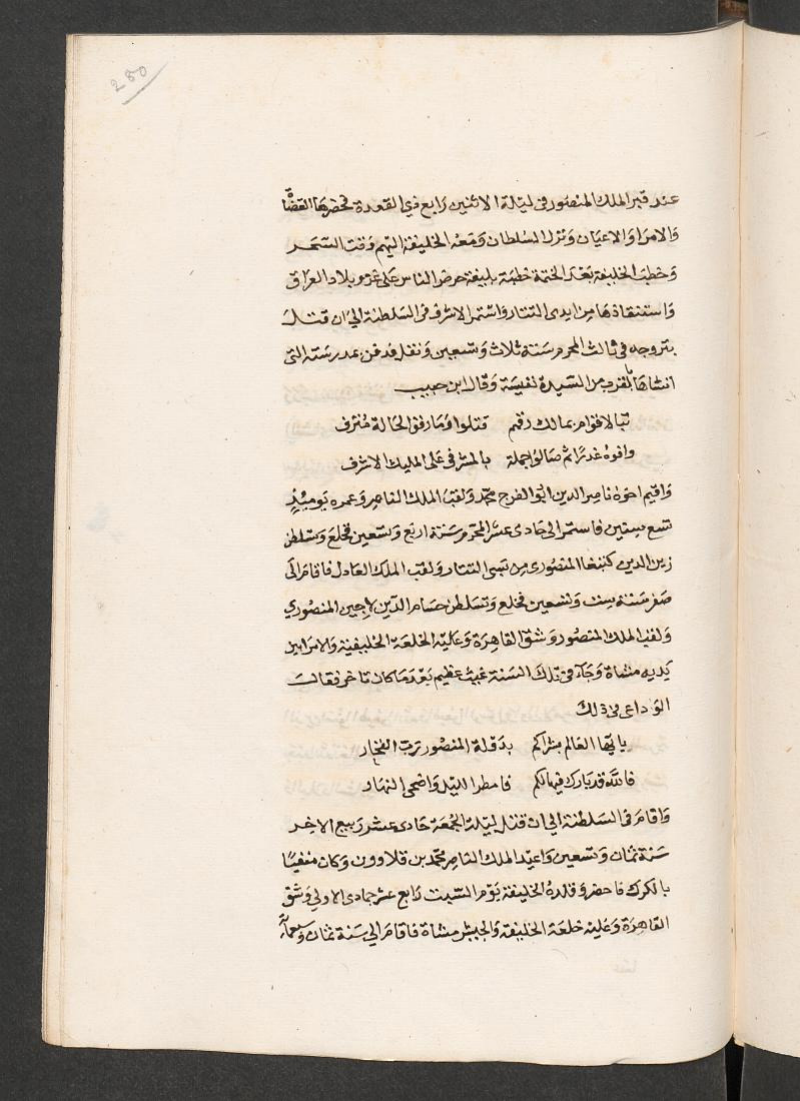 280
عند قبر الملك المنصور فى ليلة الاثنين رابع ذي القعدة فحضرها القضاة
والامرا والاعيان ونزل السلطان ومعه الخليفة اليهم وقت السحر
وخطب الخليفة بعد الختمة خطبة بليغة حرض الناس على غزو بلاد العراق
واستنقاذها من ايدى التتار واستمر الاشرف فى السلطنة الي ان قتل
بتروجه في ثالث المحرم سنة ثلاث وتسعين ونقل فدفن بمدرسته التى
انشاها بالقرب من السيدة نفيسة وقال ابن حبيب
تبا لاقوام بمالك رقهم قتلوا وما رقوا لحالة مترف
وافوه غدرا ثم صالوا جملة بالمشرفى على المليك الاشرف
واقيم اخوه ناصر الدين ابو الفرج محمد ولقب الملك الناصر وعمره يومئذ
تسع سنين فاستمر الى حادى عشر المحرم سنة اربع وتسعين فخلع وتسلطن
زين الدين كتبغا المنصورى من سبى التتار ولقب الملك العادل فاقام الى
صفر سنة ست وتسعين فخلع وتسلطن حسام الدين لاجين المنصوري
ولقب الملك المنصور وشق القاهرة وعليه الخلعة الخليفية والامرا بين
يديه مشاة وجآء فى تلك السنة غيث عظيم بعد ما كان تاخر فقال
الوداعى فى ذلك
يا ايها العالم بشراكم بدولة المنصور رب الفخار
فالله قد بارك فيها لكم فامطر الليل واضحى النهار
واقام فى السلطنة الى ان قتل ليلة الجمعة حادى عشر ربيع الاخر
سنة ثمان وتسعين واعيد الملك الناصر محمد بن قلاوون وكان منفيا
بالكرك فاحضر وقلده الخليفة يوم السبت رابع عشر جمادى الاولي وشق
القاهرة وعليه خلعة الخليفة والجيش مشاة فاقام الي سنة ثمان وسبعمآة